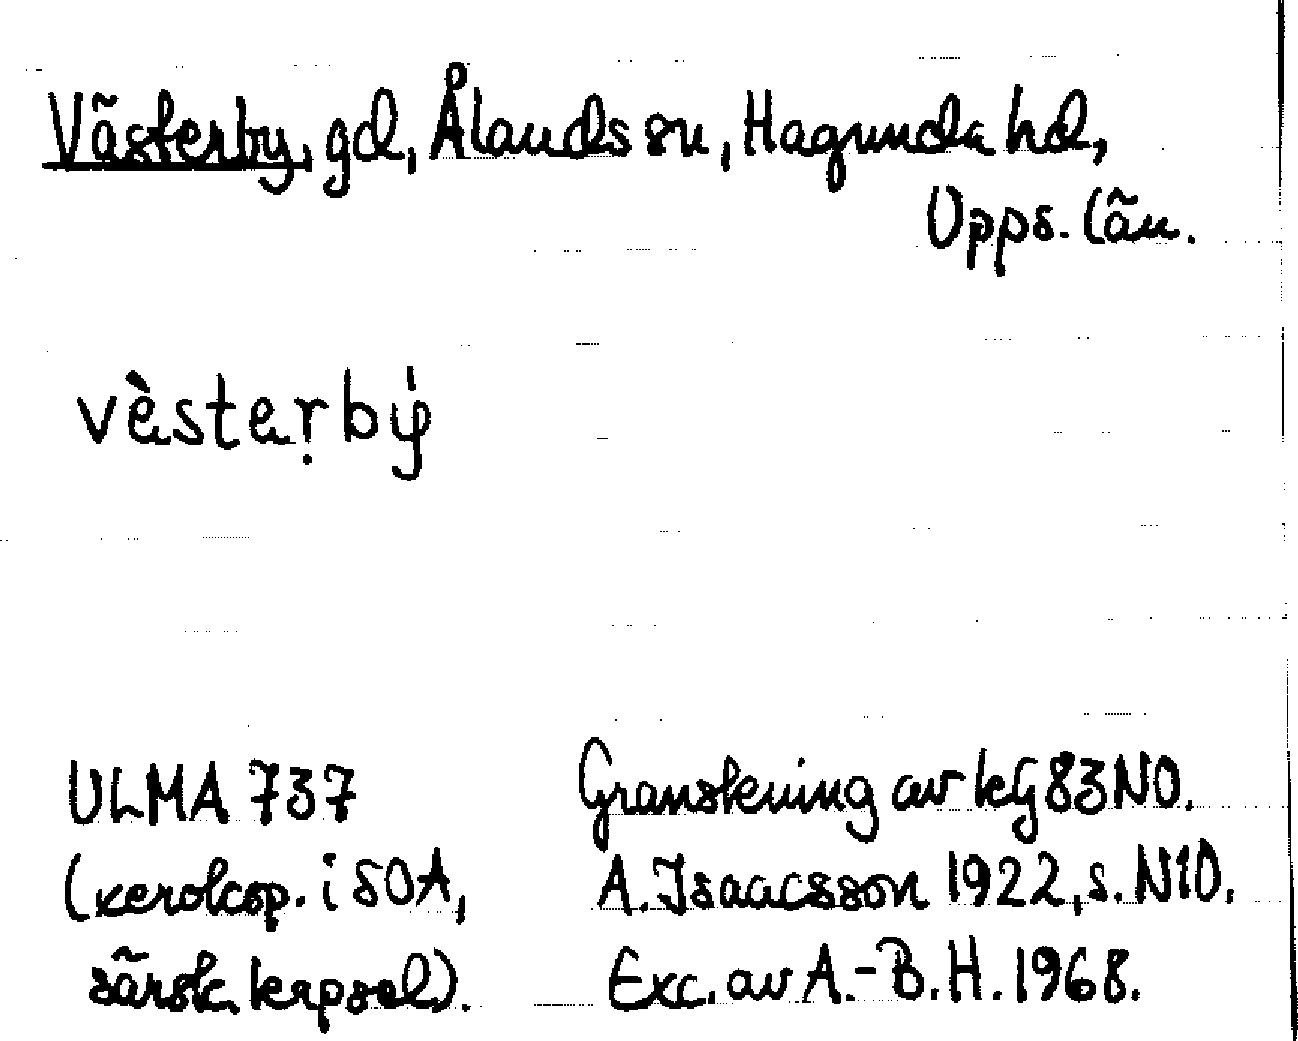 Västerby, gd, Ålands sn, Hagunda hd,
Upps. län.
vèsteṛbẏ
ULMA 737
(xerokop. i SOA,
särsk. kapsel).
Granskning av kG 83 NO.
A. Isaacsson 1922, s. N10.
Exc. av A.-B. H. 1968.